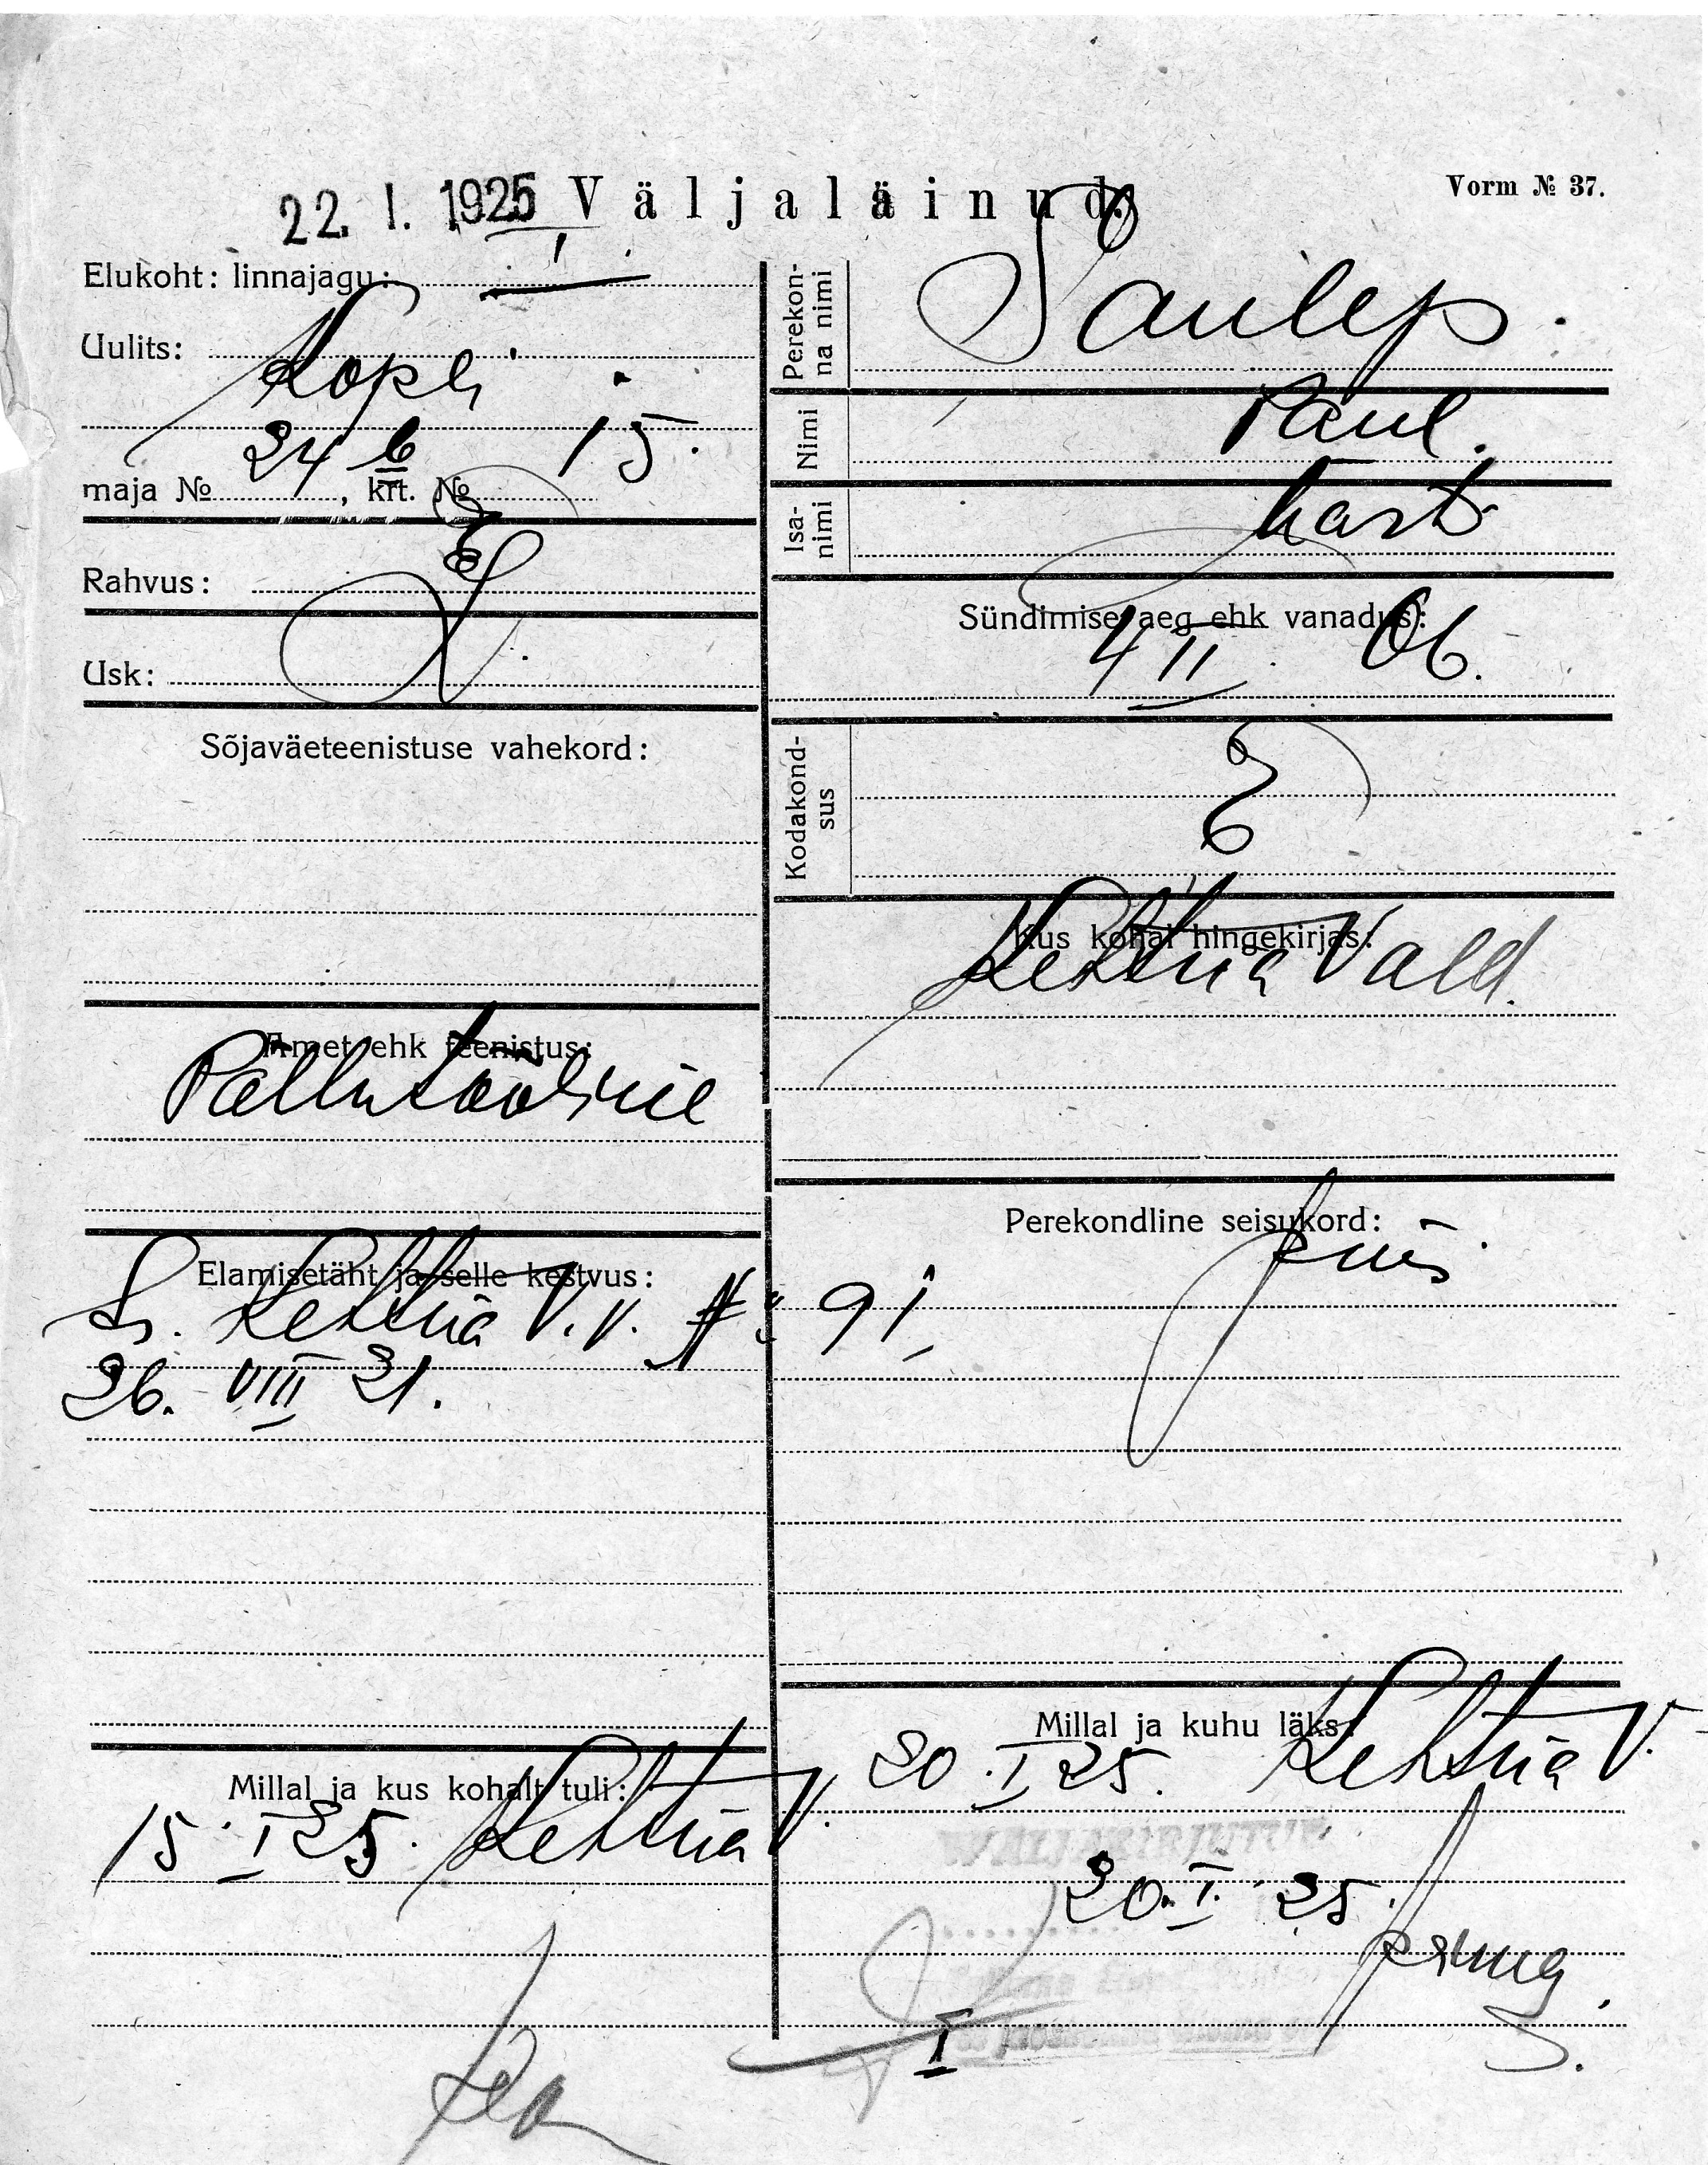 22. I. 1925 Väljaläinud. Vorm № 37.
Elukoht: linnajagu: I
Uulits: Kopli
maja № 24 b, krt. № 15.
Rahvus: E
Usk: L.
Sõjaväeteenistuse vahekord:
Amet ehk teenistus:
Põllutööline
Elamisetäht ja selle kestvus:
Kehtna V. V. № 91
26. VIII 21.
Millal ja kus kohalt tuli:
15. I 25. Kehtna V.
Perekonna nimi Saulep.
Nimi Paul.
Isanimi Mart
Sündimise aeg ehk vanadus:
4 II 06.
Kodakondsus E
Kus kohal hingekirjas:
Kehtna Vald.
Perekondline seisukord:
Millal ja kuhu läks:
20. I 25. Kehtna V.
WÄLJAKIRJUTUD
20. I. 25.
I